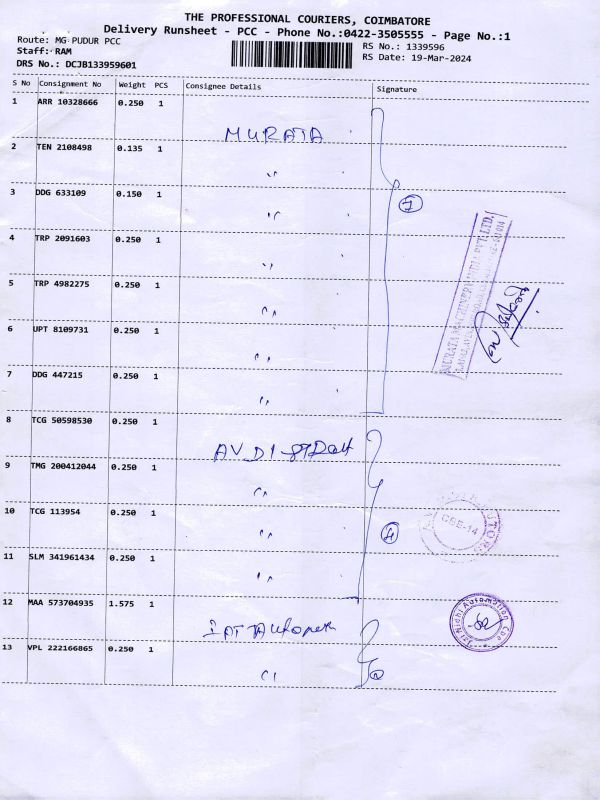 THE PROFESSIONAL COURIERS, COIMBATORE
Delivery Runsheet - PCC - Phone No.:0422-3505555 - Page No.:1
Route: MG PUDUR PCC
RS No.: 1339596
Staff: RAM
RS Date: 19-Mar-2024
DRS No.: DCJB133959601
S No Consignment No Weight PCS Consignee Details Signature
1 ARR 10328666 0.250 1
MURATA
2 TEN 2108498 0.135 1
"
3 DDG 633109 0.150 1
"
7
4 TRP 2091603 0.250 1
"
5 TRP 4982275 0.250 1
"
6 UPT 8109731 0.250 1
"
7 DDG 447215 0.250 1
"
8 TCG 50598530 0.250 1
AV
9 TMG 200412044 0.250 1
"
10 TCG 113954 0.250 1
"
4
CBE-14
11 SLM 341961434 0.250 1
"
12 MAA 573704935 1.575 1
Nidhi Automation Cbe
13 VPL 222166865 0.250 1
"
2